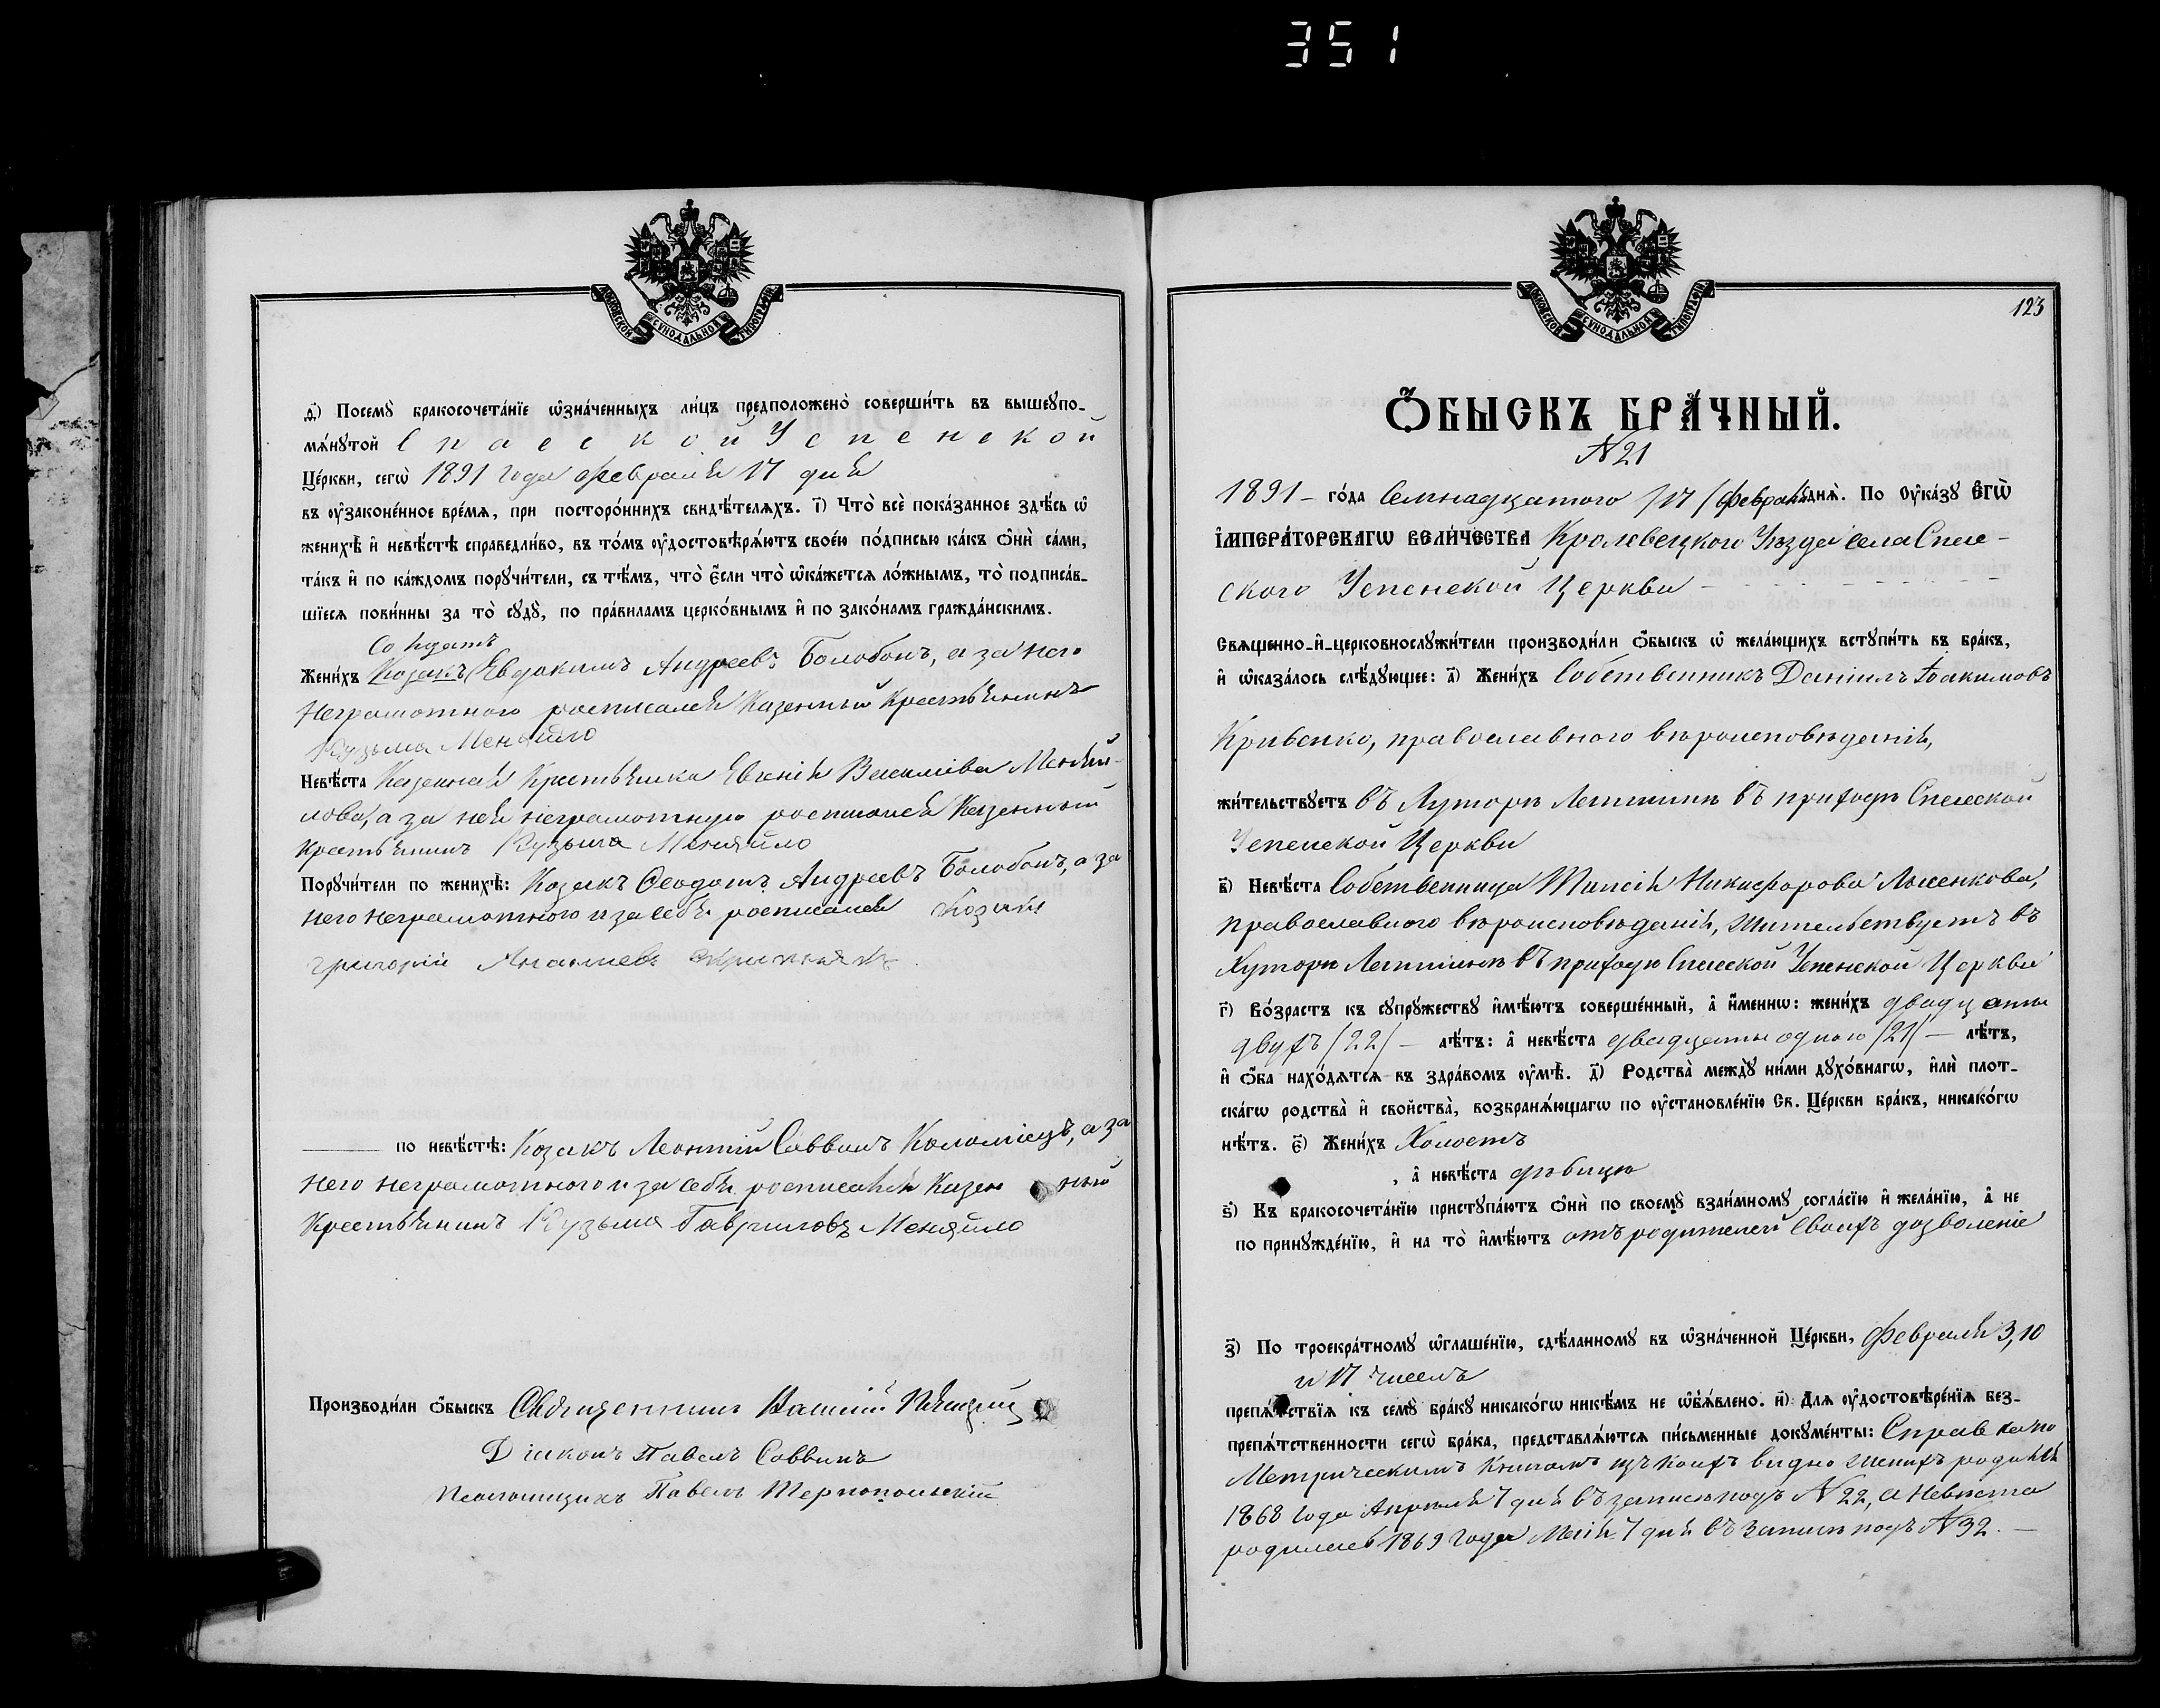 351
МОСКОВСКОЙ СѴНОДАЛЬНОЙ ТИПОГРАФІИ
д҃і) Посемꙋ̀ бракосочета́нїе ѡ҆зна́ченныхъ ли́цъ предположено̀ соверши́ть въ вышеꙋпо-
мѧ́нꙋтой Спасской Успенской
Це́ркви, сегѡ̀ 1891 года февраля 17 дня
въ ᲂу҆законе́нное вре́мѧ, при посторо́ннихъ свидѣ́телѧхъ. і҃) Что̀ всѐ пока́занное здѣ́сь ѡ҆
женихѣ̀ и҆ невѣ́стѣ справедли́во, въ то́мъ ᲂу҆достовѣрѧ́ютъ свое́ю по́дписью ка́къ ѻ҆нѝ са́ми,
та́къ и҆ по ка́ждомъ порꙋчи́тели, съ тѣ́мъ, что̀ є҆́сли что̀ ѡ҆ка́жетсѧ ло́жнымъ, то̀ подписа́в-
шїесѧ пови́нны за то̀ сꙋдꙋ̀, по пра́виламъ церко́внымъ и҆ по зако́намъ гражда́нскимъ.
Солдатъ
Жени́хъ Козакъ Евдокимъ Андреевъ Болобонъ, а за него
неграмотного росписался Казенный Крестьянинъ
Кузьма Меняйло
Невѣ́ста Казенная Крестьянка Евгенія Василіева Меняй-
лова, а за нея неграмотную росписался Казенный
Крестьянинъ Кузьма Меняйло
Порꙋчи́тели по женихѣ̀: Козакъ Ѳеодотъ Андреевъ Болобонъ, а за
него неграмотного и за себя росписался Козакъ
Григорій
по невѣ́стѣ: Козакъ Леонтій Саввинъ Коломіецъ, а за
него неграмотного и за себя росписался Казенный
Крестьянинъ Кузьма Гавриловъ Меняйло
Производи́ли ѻ҆́быскъ Священникъ
Діаконъ Павелъ Саввинъ
Псаломщикъ Павелъ Тернопольскій
МОСКОВСКОЙ СѴНОДАЛЬНОЙ ТИПОГРАФІИ
123
Ѻ҆́БЫСКЪ БРА́ЧНЫЙ.
N 21
1891 - го́да Семнадцатого /17/ февраля днѧ̀. По ᲂу҆ка́зꙋ Є҆гѡ̀
І҆мпера́торскагѡ Вели́чества Кролевецкого Уѣзда села Спас-
ского Успенской Церкви
Свѧщенно-и҆-церковнослꙋжи́тели производи́ли ѻ҆́быскъ ѡ҆ жела́ющихъ встꙋпи́ть въ бра́къ,
и҆ ѡ҆каза́лось слѣ́дꙋющее: а҃) Жени́хъ Собственникъ Даніилъ Іоакимовъ
Кривенко, православного вѣроисповѣданія,
жи́тельствꙋетъ въ Хуторѣ Лапшинѣ въ приходѣ Спасской
Успенской Церкви
в҃) Невѣ́ста Собственница Таисія Никифорова Лысенкова,
православного вѣроисповѣданія, жительствуетъ въ
Хуторѣ Лапшинѣ въ приходѣ Спасской Успенской Церкви
г҃) Во́зрастъ къ сꙋпрꙋ́жествꙋ и҆мѣ́ютъ соверше́нный, а҆ и҆́меннѡ: жени́хъ двадцати
двухъ /22/ — лѣ́тъ: а҆ невѣ́ста двадцати одного /21/ — лѣ́тъ,
и҆ ѻ҆́ба нахо́дѧтсѧ въ здра́вомъ ᲂу҆мѣ̀. д҃) Родства̀ междꙋ̀ ни́ми дꙋхо́внагѡ, и҆лѝ плот-
ска́гѡ родства̀ и҆ свойства̀, возбранѧ́ющагѡ по ᲂу҆становле́нїю Св. Це́ркви бра́къ, никако́гѡ
нѣ́тъ. є҃) Жени́хъ Холостъ
, а҆ невѣ́ста дѣвица
ѕ҃) Къ бракосочета́нїю пристꙋпа́ютъ ѻ҆нѝ по своемꙋ̀ взаи́мномꙋ согла́сїю и҆ жела́нїю, а҆ не
по принꙋжде́нїю, и҆ на то̀ и҆мѣ́ютъ отъ родителей своихъ дозволеніе
з҃) По троекра́тномꙋ ѡ҆глаше́нїю, сдѣ́ланномꙋ въ ѡ҆зна́ченной Це́ркви, февраля 3, 10
и 17 чиселъ
препѧ́тствїѧ къ семꙋ̀ бра́кꙋ никако́гѡ никѣ́мъ не ѡ҆б̾ѧ́влено. и҃) Длѧ ᲂу҆достовѣре́нїѧ без-
препѧ́тственности сегѡ̀ бра́ка, представлѧ́ютсѧ пи́сьменные докꙋме́нты: Справка по
Метрическимъ Книгамъ изъ коихъ видно женихъ родился
1868 года Апрѣля 7 дня въ записи подъ N 22, а Невѣста
родилась 1869 года Маія 7 дня въ записи подъ N 32. —